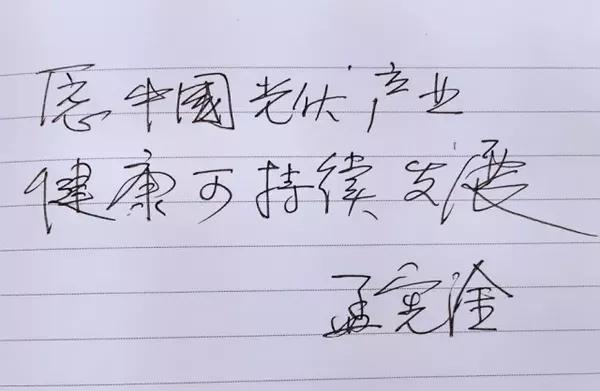 愿中國光伏产业
健康可持续发展
孟宪淦